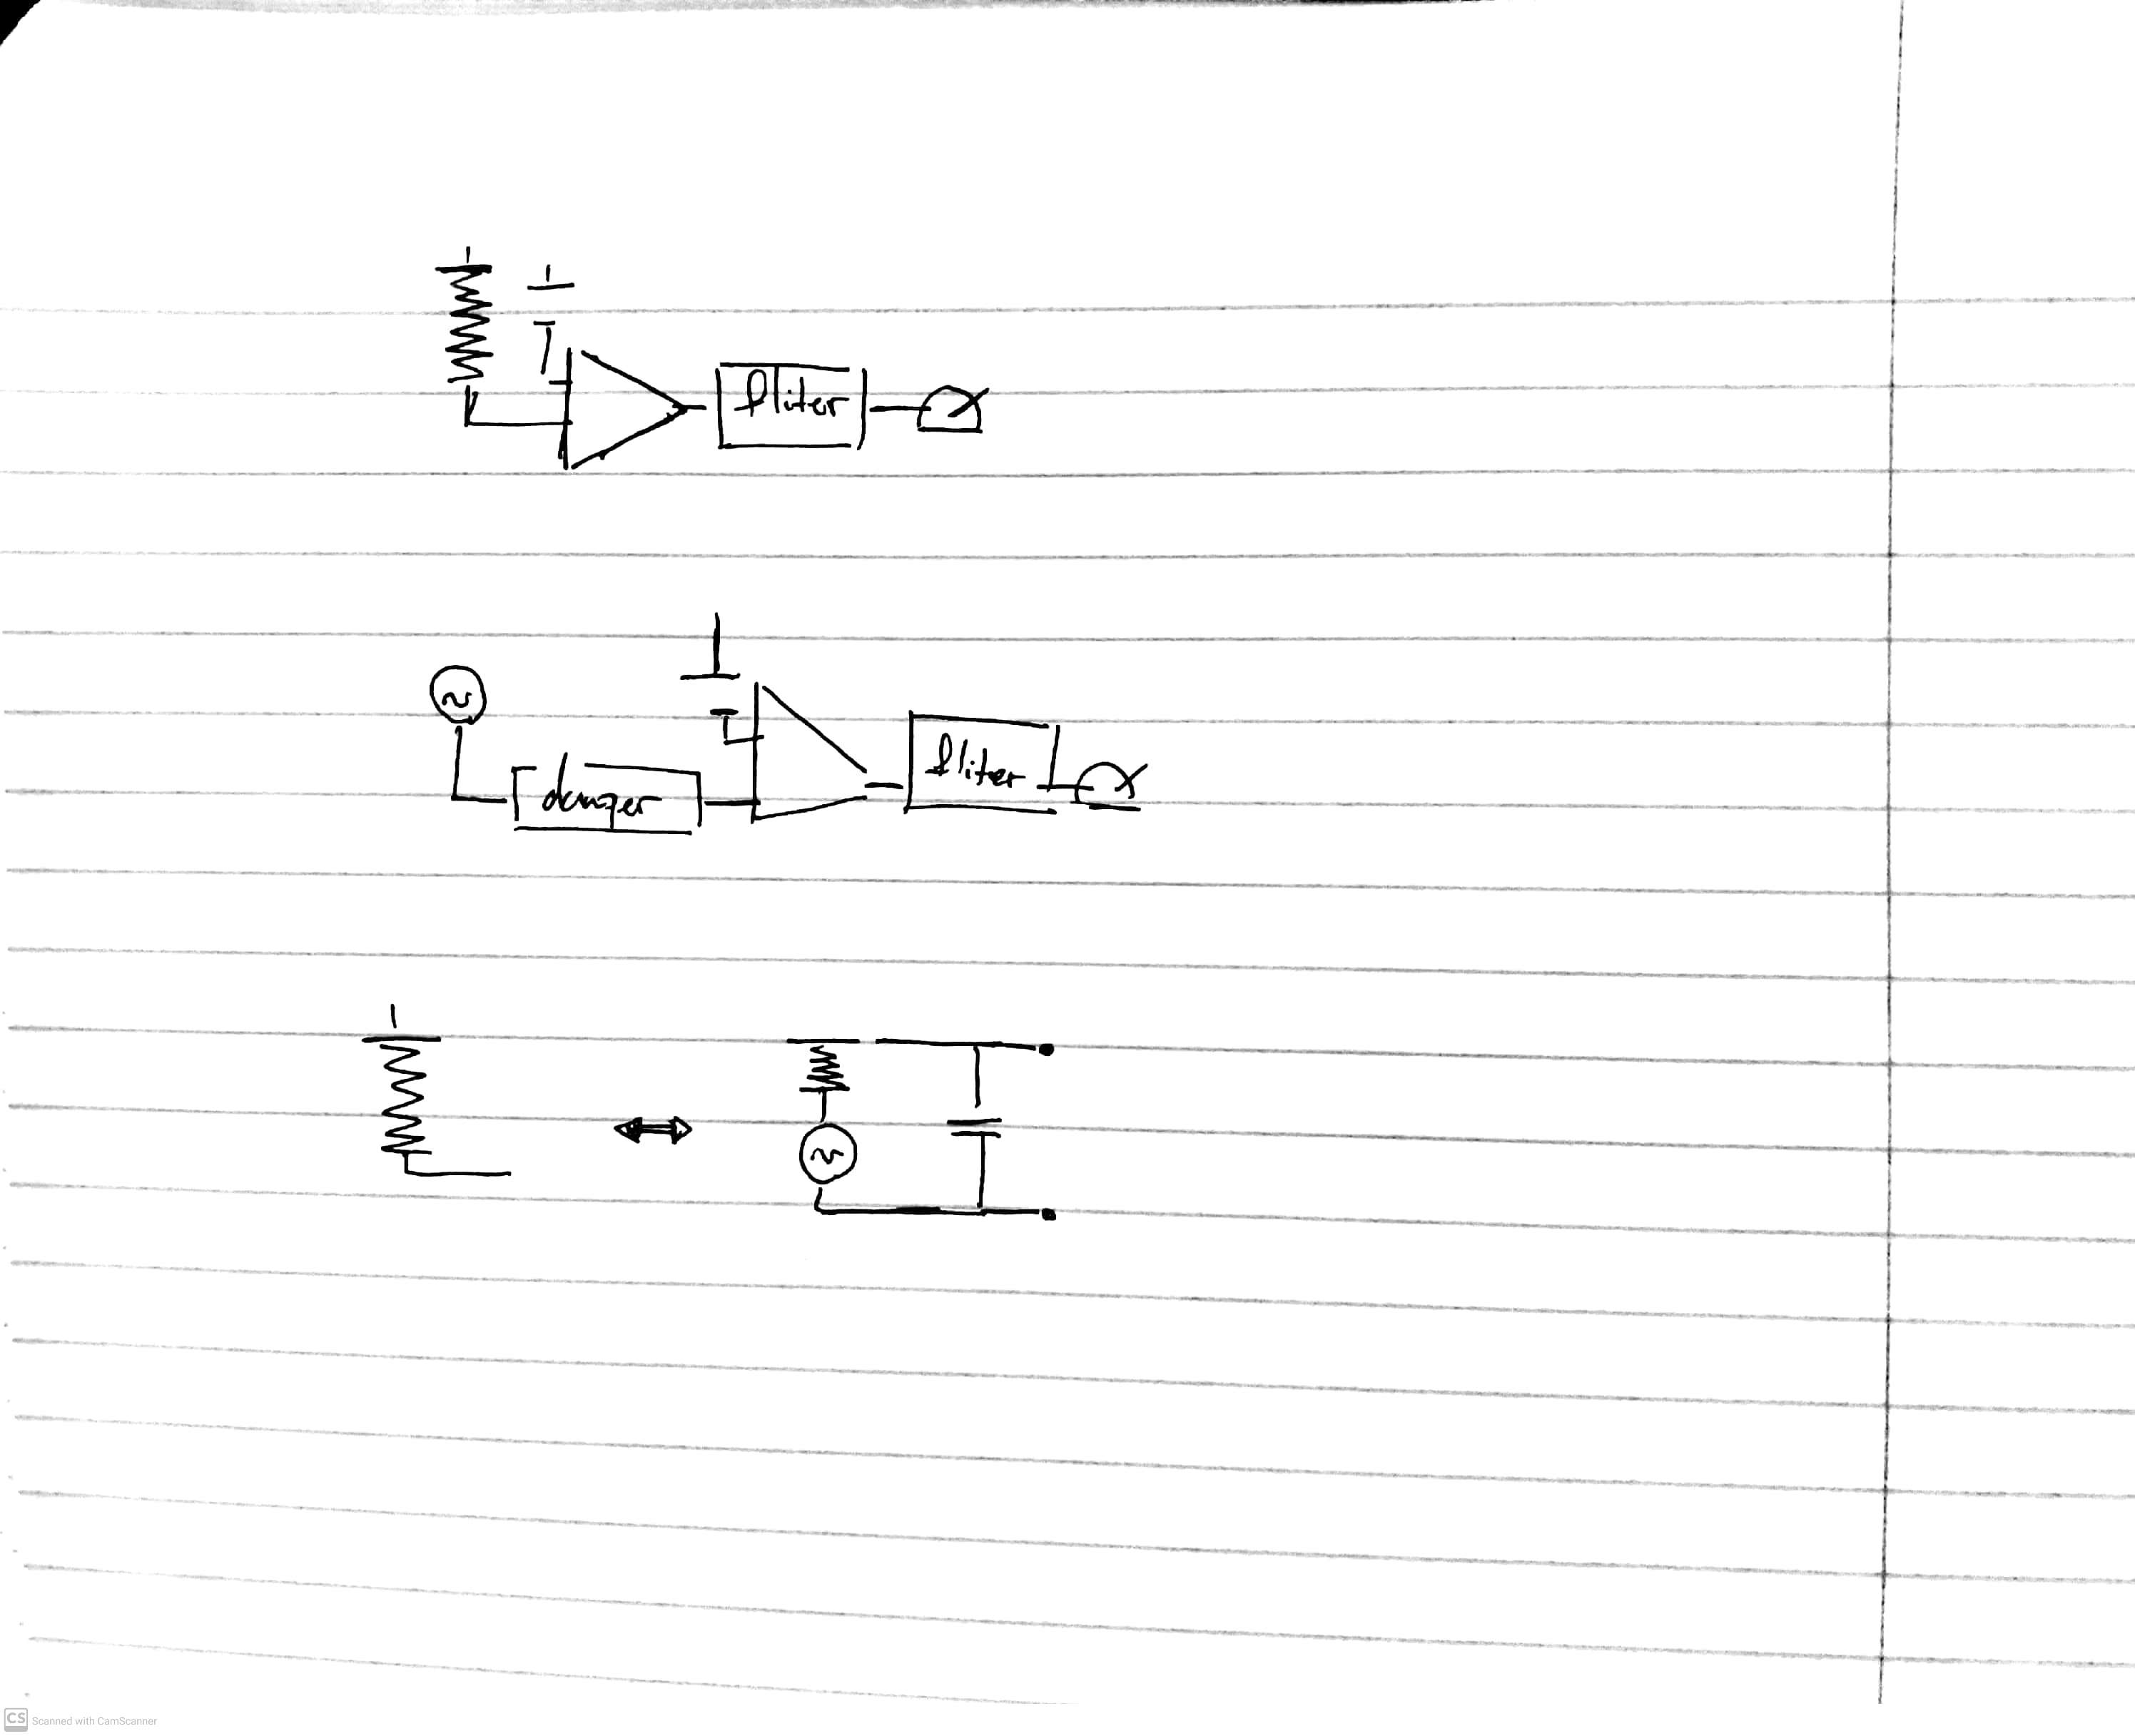 filter
damper
filter
CS Scanned with CamScanner